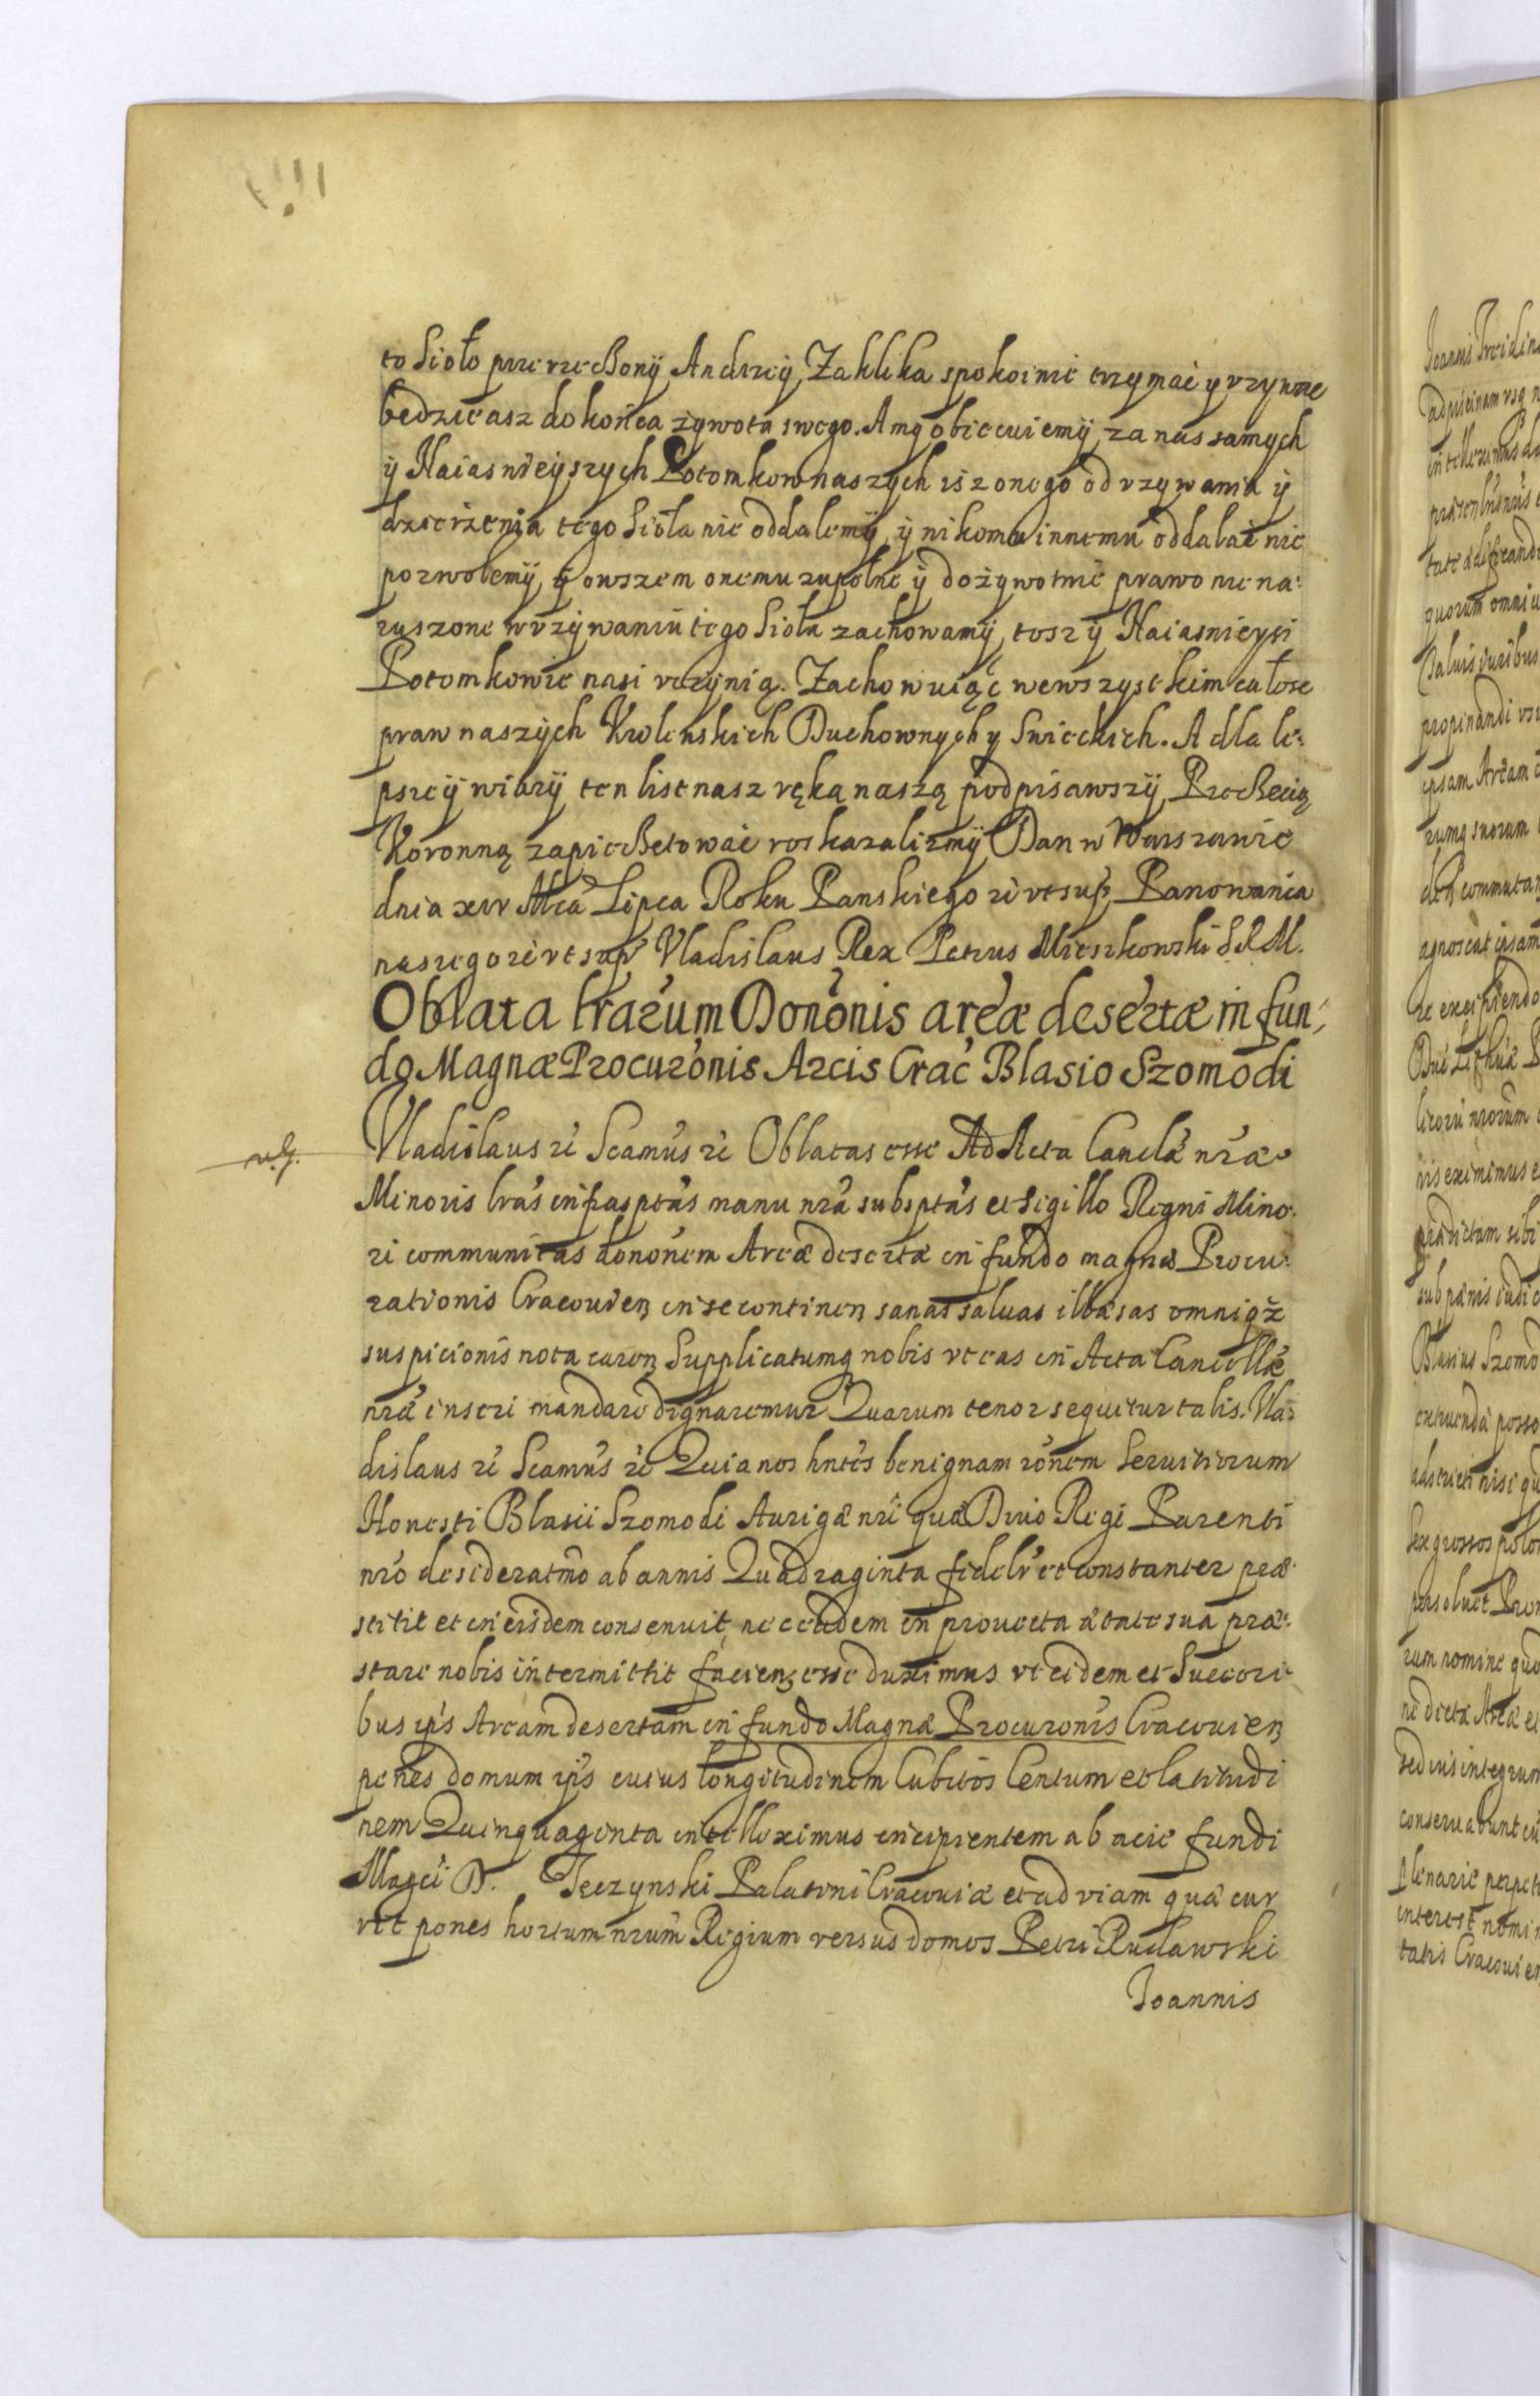 to Sioło przerzeczony Andrzey Zaklika spokoinie trzymać y vzywac
będzie asz do końca zywota swego. A my obiecuiemy, za nas samych
ÿ Naiasnieyszych Potomkow naszych isz onego od vzywania ÿ
dzierżenia tego Sioła nie oddalemÿ, ÿ nikomu innemu oddalać nie
pozwolemÿ, ÿ owszem onemu zupełne ÿ dożywotnie prawo nie na:
ruszone w vzÿwaniu tego Sioła zachowamÿ, tosz ÿ Naiasnieysi
Potomkowie nasi vczynią. Zachowuiąc wewszystkim całosc
praw naszych Krolewskich Duchownych y Swieckich. A dla le:
pszeÿ wiarÿ ten list nasz ręką naszą podpisawszÿ, Pieczęcią
Koronną zapieczętować roskazalismÿ Dan w Warszawie
dnia xiv Mca Lipca Roku Panskiego rć vt sup, Panowania
naszego rć vt sup Vladislaus Rex Petrus Mieszkowski S R M.
Oblata lrarum Dononis areæ desertæ in fun,
do Magnæ Procuronis Arcis Crac Blasio Szomodi
v.g.
Vladislaus rć Scamus rć Oblatas esse Ad Acta Canclæ nræ
Minoris lras infrasptas manu nra subsptas et Sigillo Regni Mino:
ri communitas dononem Areæ desertæ in fundo magnæ Procu:
rationis Cracouien in se continen sanas saluas illæsas omniq
suspicionis nota caren Supplicatumq nobis vt eas in Acta Cancellæ
nræ inseri mandare dignaremur Quarum tenor sequitur talis. Vla:
dislaus rć Scamus rć Quia nos hntes benignam ronem Seruitiorum
Honesti Blasii Szomodi Aurigæ nri quæ Diuo Regi Parenti
nro desideratmo ab annis Quadraginta fidelr et constanter præ
stitit et in eisdem consenuit, nec eadem in prouecta ætate sua præ:
stare nobis intermittit facien esse duximus vt eidem et Succori
bus ips Aream desertam in fundo Magnæ Procuronis Cracouien
penes domum ips cuius longitudinem Cubitos Centum et latitudi
nem Quinquaginta intelleximus incipientem ab acie fundi
Magci D. Teczynski Palatini Cracouiæ et ad viam quæ cur
rit penes hortum nrum Regium versus domos Petri Rudawski
Joannis